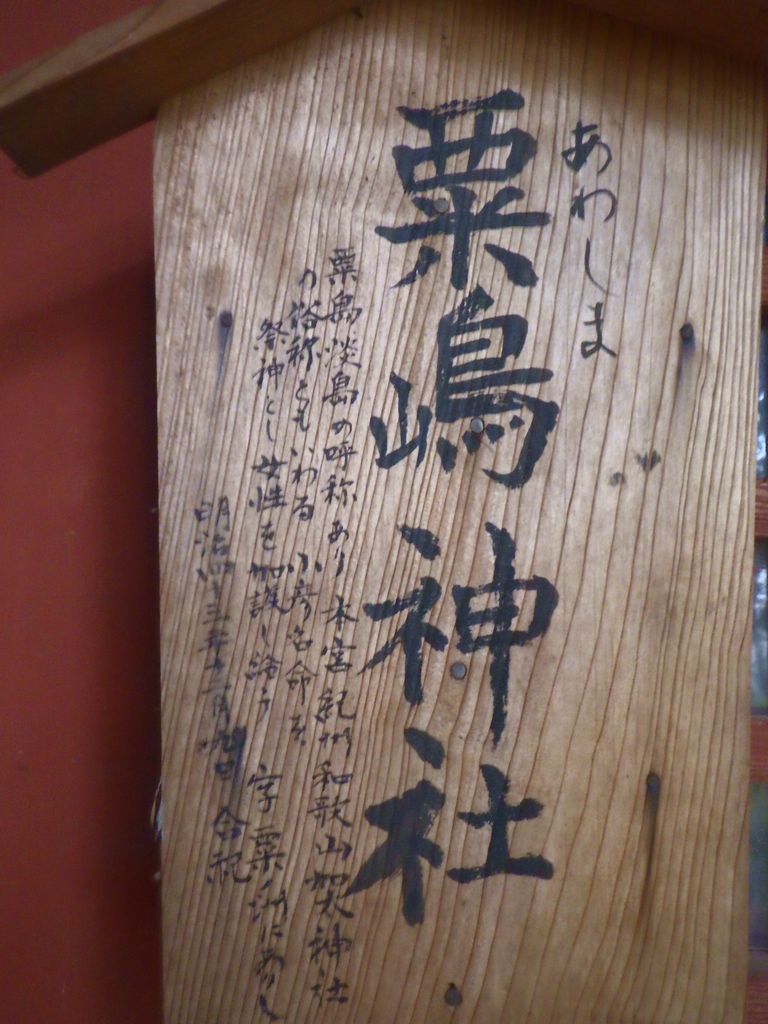 あわしま
粟嶋神社
粟島淡島の呼称あり 本宮 紀州和歌山加太神社
の俗称ともいわる 小彦名命を
祭神とし女性を加護し給う 字粟ノ
明治四十三年十二月 合祀